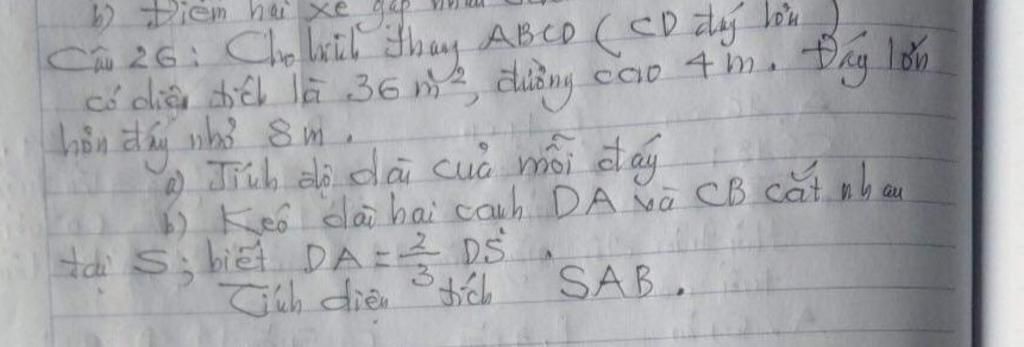 b) Điểm hai xe gặp nhau
Câu 26: Cho hình thang ABCD (CD đáy lớn)
có diện tích là 36 m², đường cao 4m. Đáy lớn
hơn đáy nhỏ 8m.
a) Tính độ dài của mỗi đáy
b) Kéo dài hai cạnh DA và CB cắt nhau
tại S; biết DA = 2/3 DS.
Tính diện tích SAB.